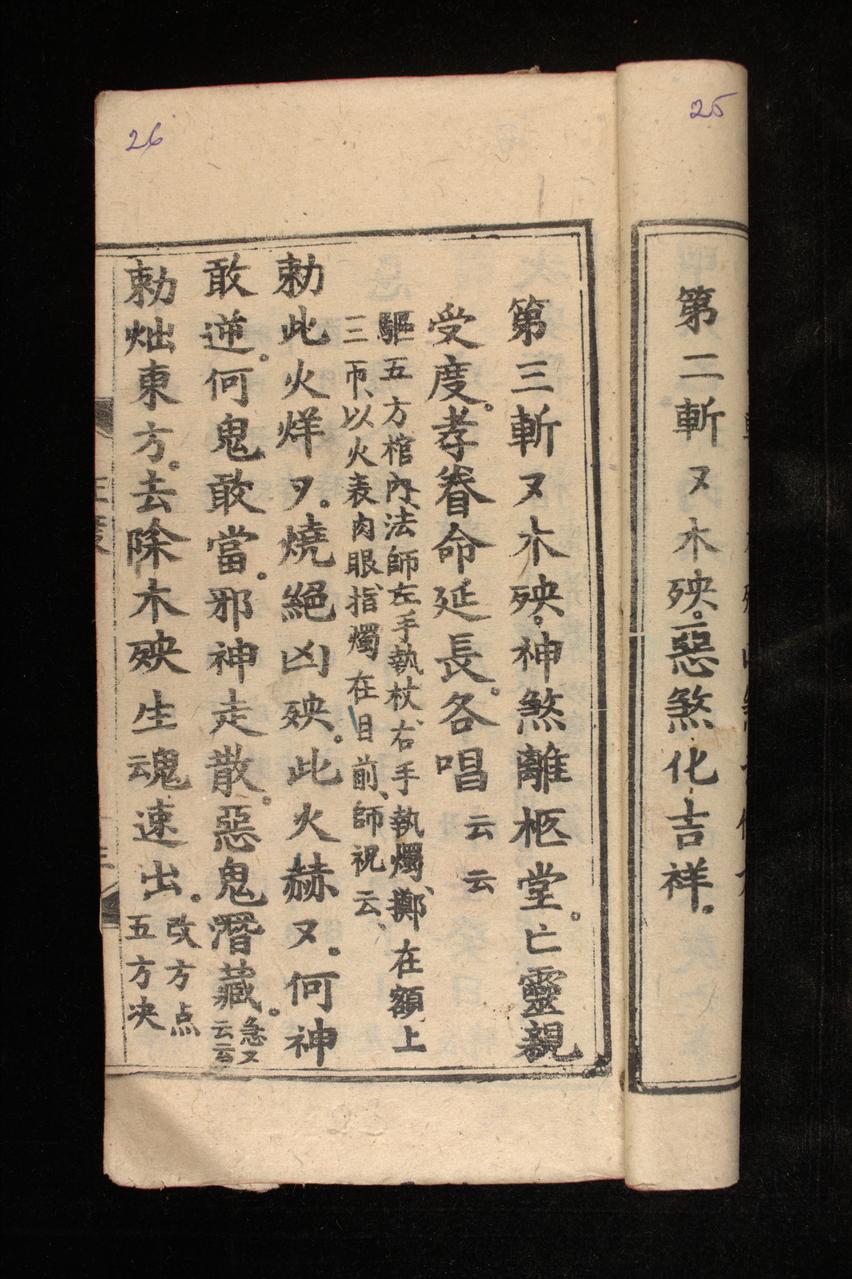 25
第二斬又木殃。惡煞化吉祥。
26
第三斬又木殃。神煞離柩堂。亡靈親
受度。孝眷命延長。各唱云云
驅五方棺內、法師左手執杖、右手執燭、擲在額上
三帀、以火表肉眼、指燭在目前、師祝云、
勅此火烊又。燒絕凶殃。此火赫又。何神
敢逆。何鬼敢當。邪神走散。惡鬼潛藏。急又云云
勅炪東方。去除木殃生魂速出。改方点五方決